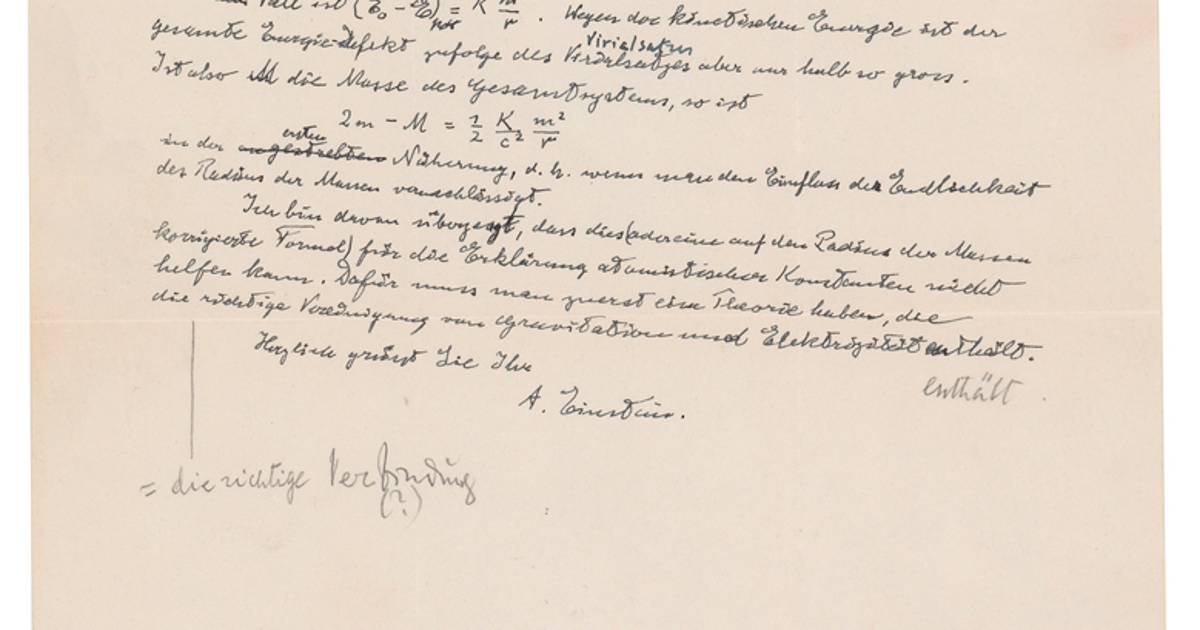 Fall ist
K m/r . Wegen der kinetischen Energie ist der
Virialsatzes
gesamte Energie-Defekt zufolge des Virialsatzes aber nur halb so gross.
Ist also M die Masse des Gesamtsystems, so ist
2m - M = 1/2 K/c² m²/r
ersten
in der angestrebten Näherung, d. h. wenn man den Einfluss der Endlichkeit
des Radius der Massen vernachlässigt.
Ich bin davon überzeugt, dass dies (oder eine auf den Radius der Massen
korrigierte Formel) für die Erklärung atomistischer Konstanten nicht
helfen kann. Dafür muss man zuerst eine Theorie haben, die
die richtige Vereinigung von Gravitation und Elektrizität enthält.
enthält
Herzlich grüsst Sie Ihr
A. Einstein.
= die richtige Verbindung
(?)